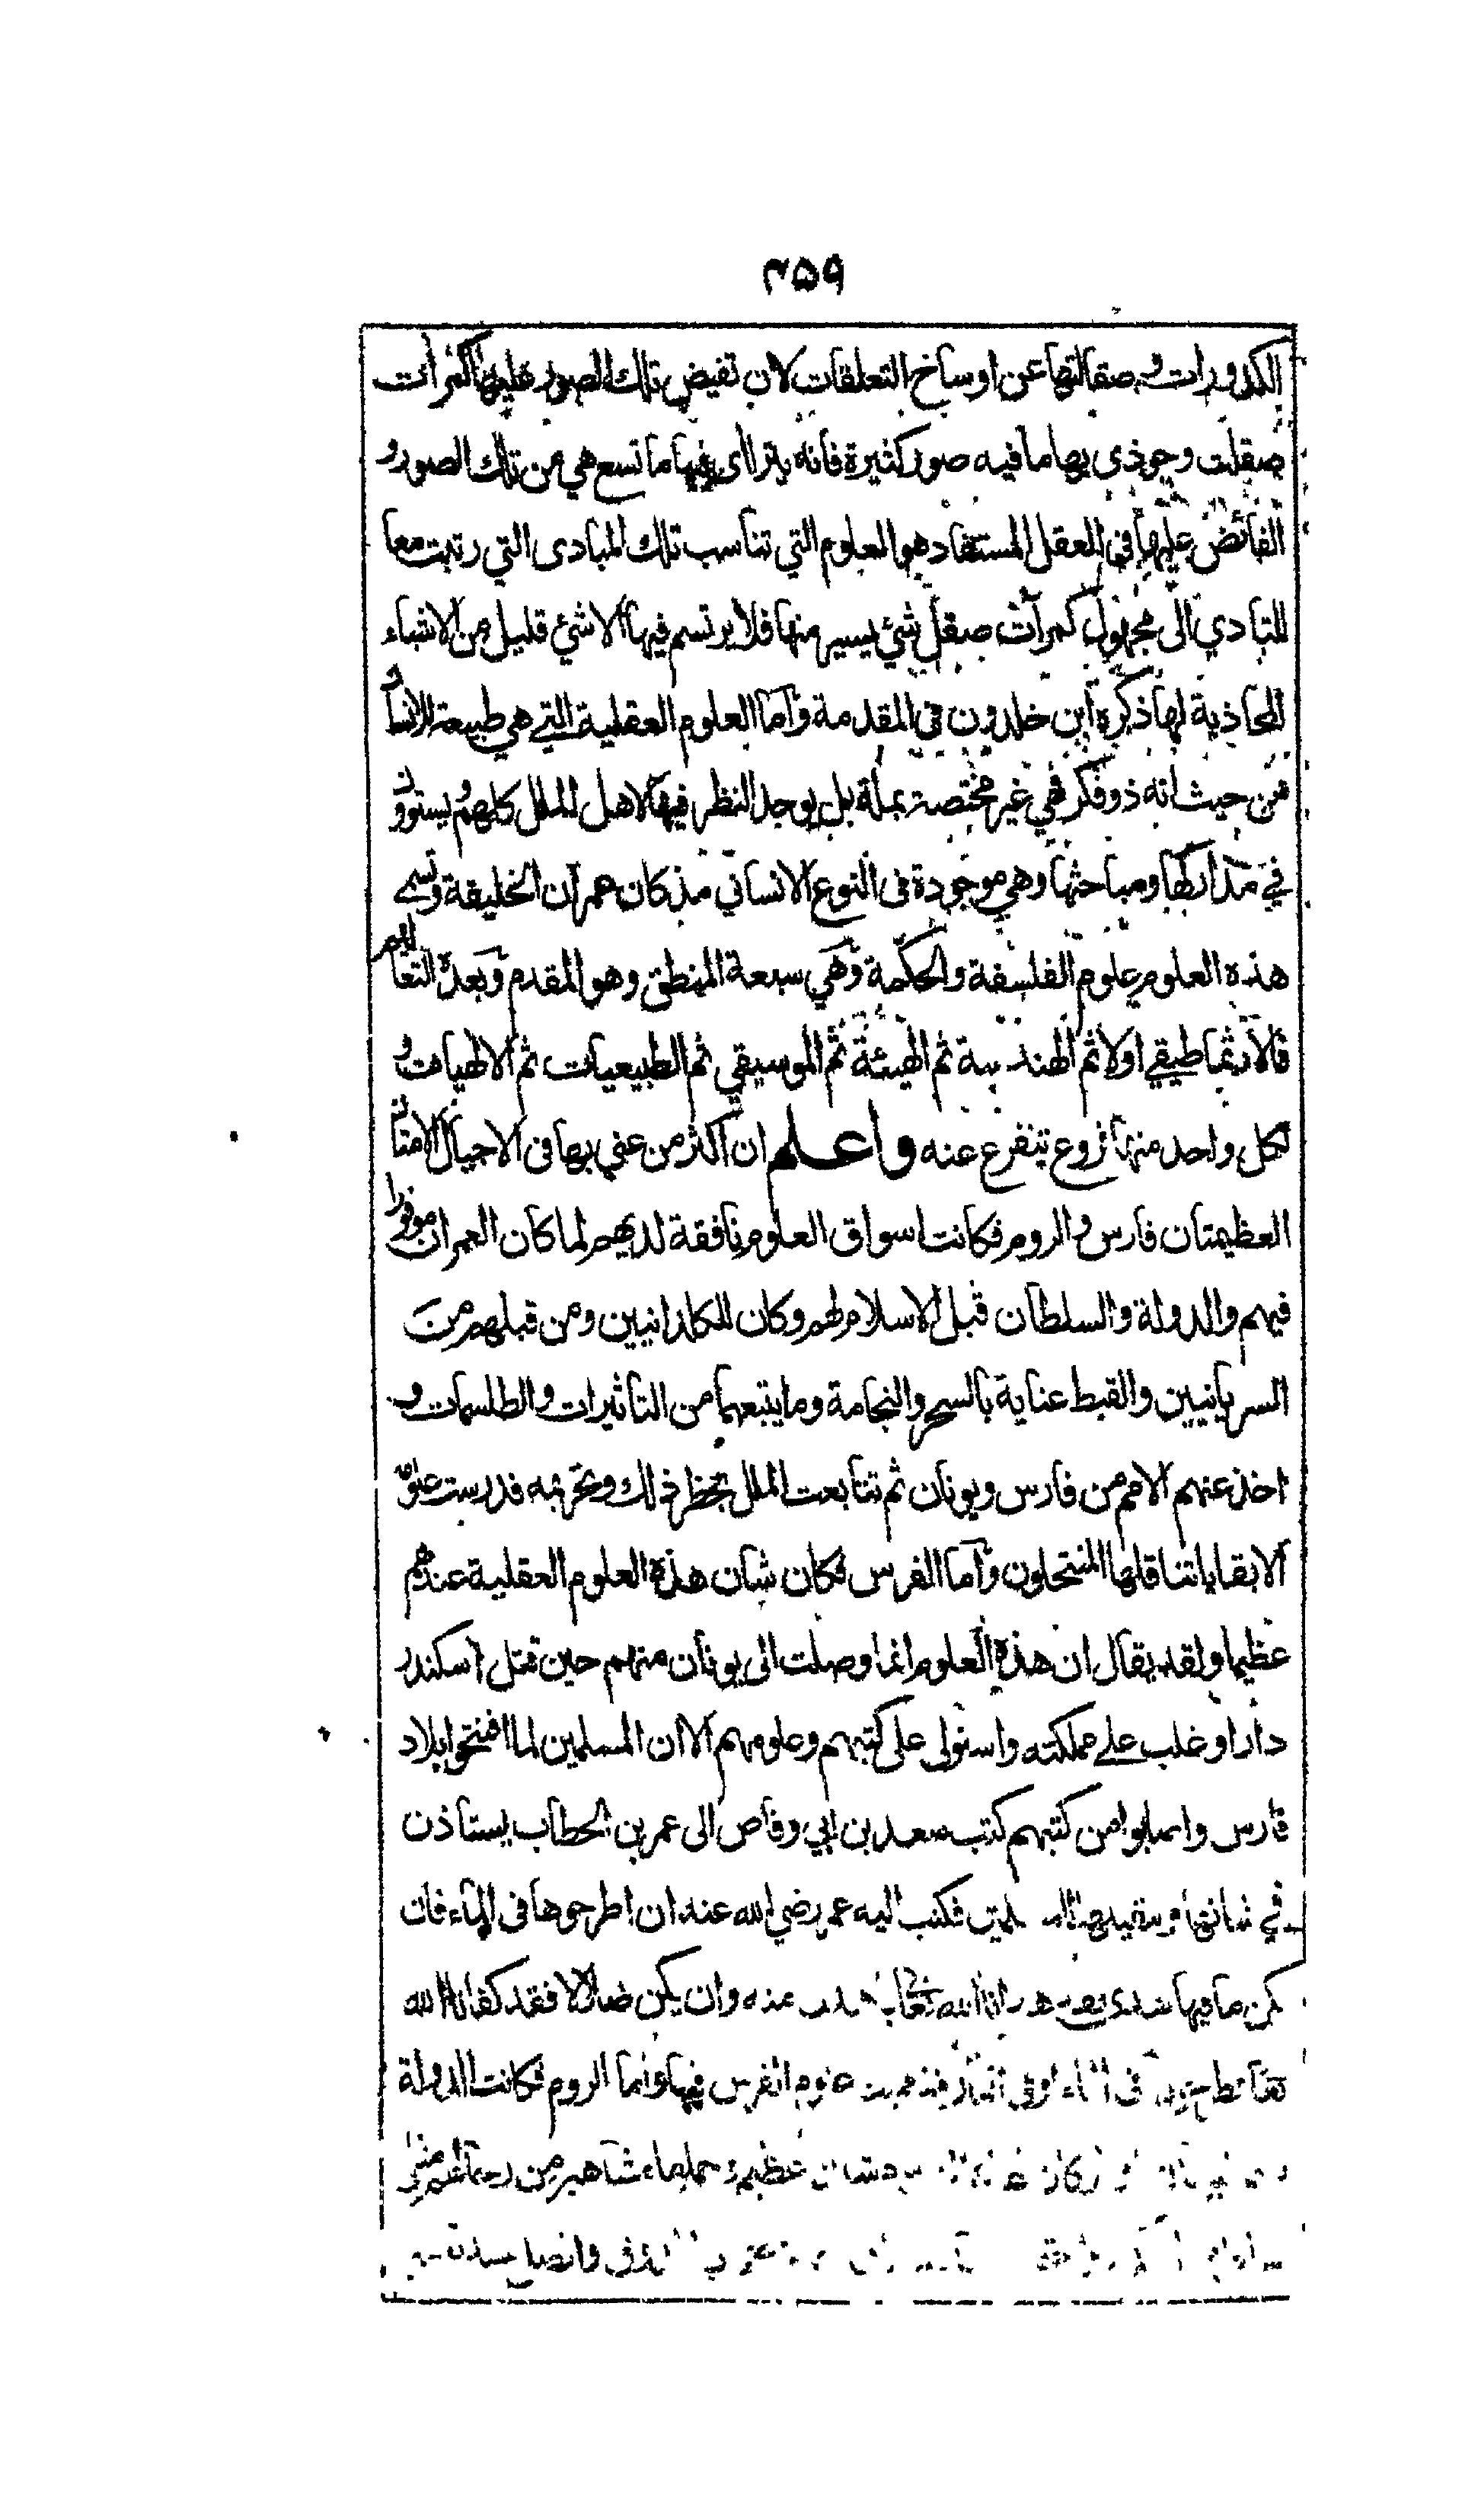 ٣٥٩
الكدورات وصقالتها عن اوساخ التعلقات لان تفيض تلك الصور عليها كمرأت
صقلت وحوذى بها ما فيه صور كثيرة فانه يتراأى فيها ما تسع هي من تلك الصور و
الفائض عليها فى العقل المستفاد هو العلوم التي تناسب تلك المبادى التي رتبت معا
للتادي الى مجهول كمرآت صقل شئ يسير منها فلا يرتسم فيها الا شئ قليل من الاشياء
المحاذية لها ذكره ابن خلدون فى المقدمة واما العلوم العقلية التے هي طبيعة للانسان
من حيث انه ذو فكر فهي غير مختصة بملة بل يوجد النظر فيها لاهل الملل كلهم ويستوون
في مداركها ومباحثها وهي موجودة فى النوع الانساني مذ كان عمران الخليقة وتسمے
هذه العلوم علوم الفلسفة والحكمة وهي سبعة المنطق وهو المقدم وبعده التعاليم
فالارثماطيقي اولا ثم الهندسة ثم الهيئة ثم الموسيقي ثم الطبيعيات ثم الالهيات و
لكل واحد منها فروع تتفرع عنه واعلم ان اكثر من عني بها فى الاجيال الامتان
العظيمتان فارس والروم فكانت اسواق العلوم نافقة لديهم لما كان العمران موفورا
فيهم والدولة والسلطان قبل الاسلام لهم وكان للكلدانيين ومن قبلهم من
السريانيين والقبط عناية بالسحر والنجامة وما يتبعهما من التاثيرات والطلسمات و
اخذ عنهم الامم من فارس ويونان ثم تتابعت الملل بحظر ذلك وتحريمه فدرست علومه
الا بقايا تتناقلها المنتحلون واما الفرس فكان شان هذه العلوم العقلية عندهم
عظيما ولقد يقال ان هذه العلوم انما وصلت الى يونان منهم حين قتل اسكندر
دارا وغلب علے مملكته واستولى على كتبهم وعلومهم الا ان المسلمين لما افتتحوا بلاد
فارس واصابوا من كتبهم كتب سعد بن ابي وقاص الى عمر بن الخطاب يستاذن
في شانها فكتب اليه عمر رضي الله عنه ان اطرحوها فى الماء فان
يكن ما فيها هدى منه وان يكن ضلالا فقد كفانا الله
فى الماء او فى النار علوم الفرس فيها واما الروم فكانت الدولة
عظيم وحملها مشاهير من رجالهم مثل